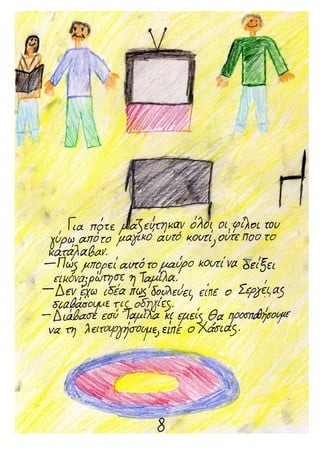 Για πότε μαζεύτηκαν όλοι οι φίλοι του
γύρω από το μαγικό αυτό κουτί, ούτε που το
κατάλαβαν.
—Πώς μπορεί αυτό το μαύρο κουτί να δείξει
εικόνα; ρώτησε η Ταμίλα.
—Δεν έχω ιδέα πως δουλεύει, είπε ο Σεργκέι, ας
διαβάσουμε τις οδηγίες.
—Διάβασε εσύ Ταμίλα κι εμείς θα προσπαθήσουμε
να τη λειτουργήσουμε, είπε ο Χάσιας.
8